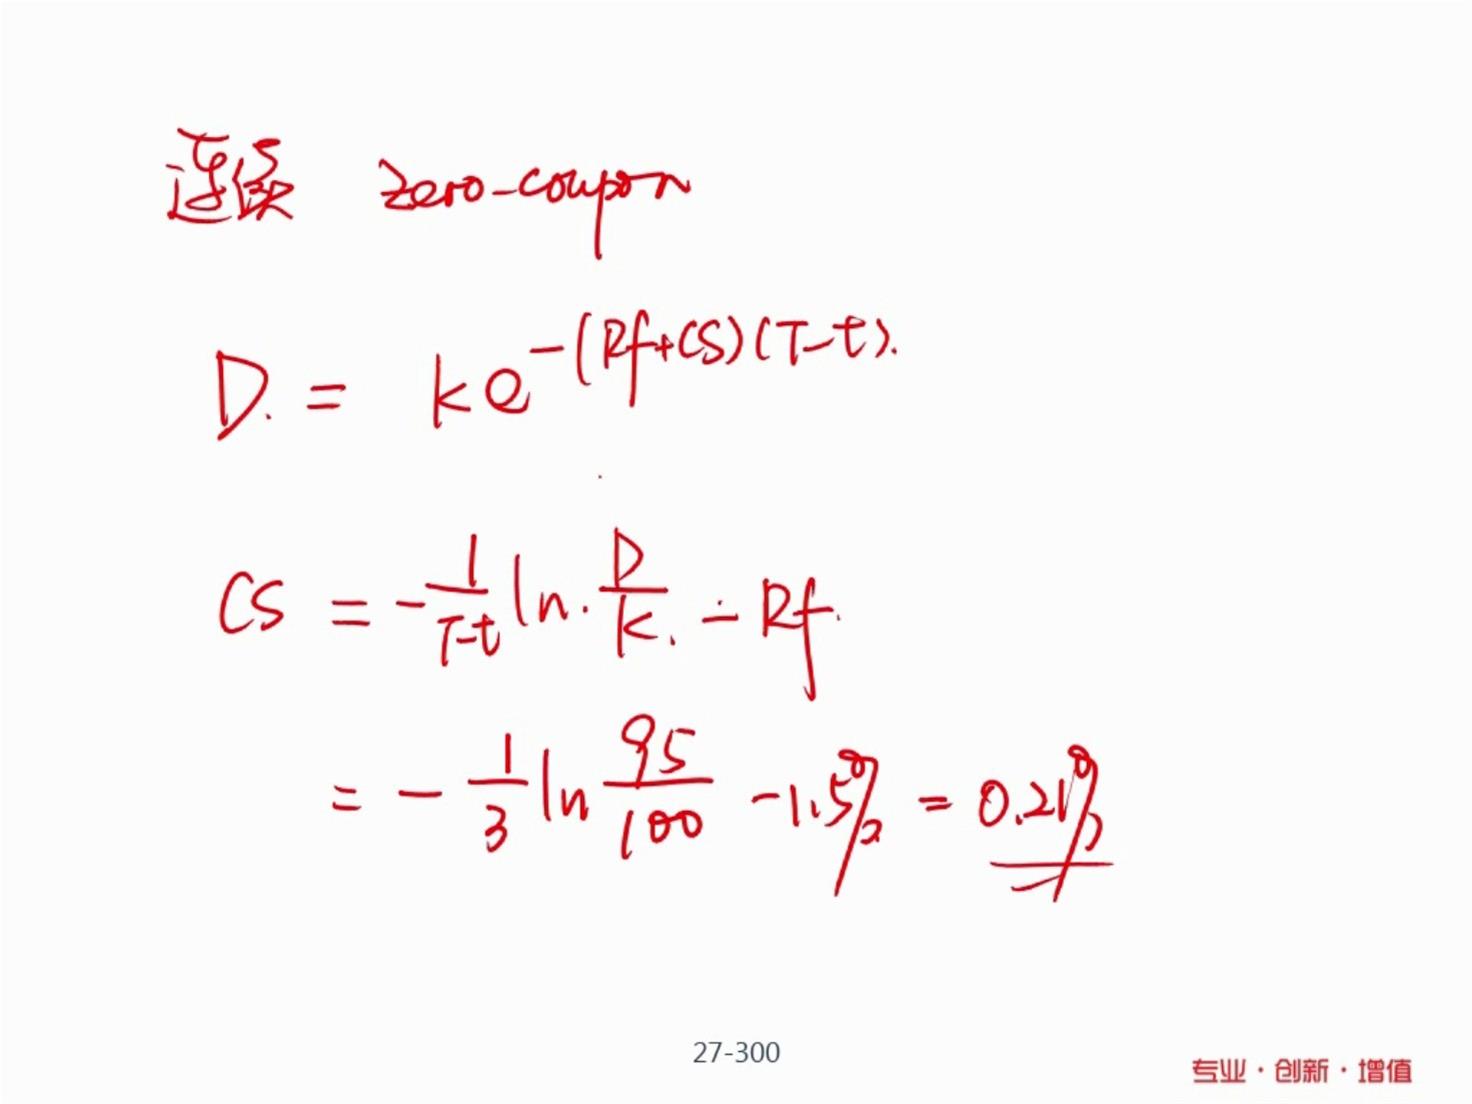 连续 zero-coupon
D. = ke^{-(Rf+CS)(T-t)}.
CS = -\frac{1}{T-t} ln \cdot \frac{D}{K} . - Rf.
= -\frac{1}{3} ln \frac{95}{100} -1.5% = 0.21%
27-300
专业·创新·增值